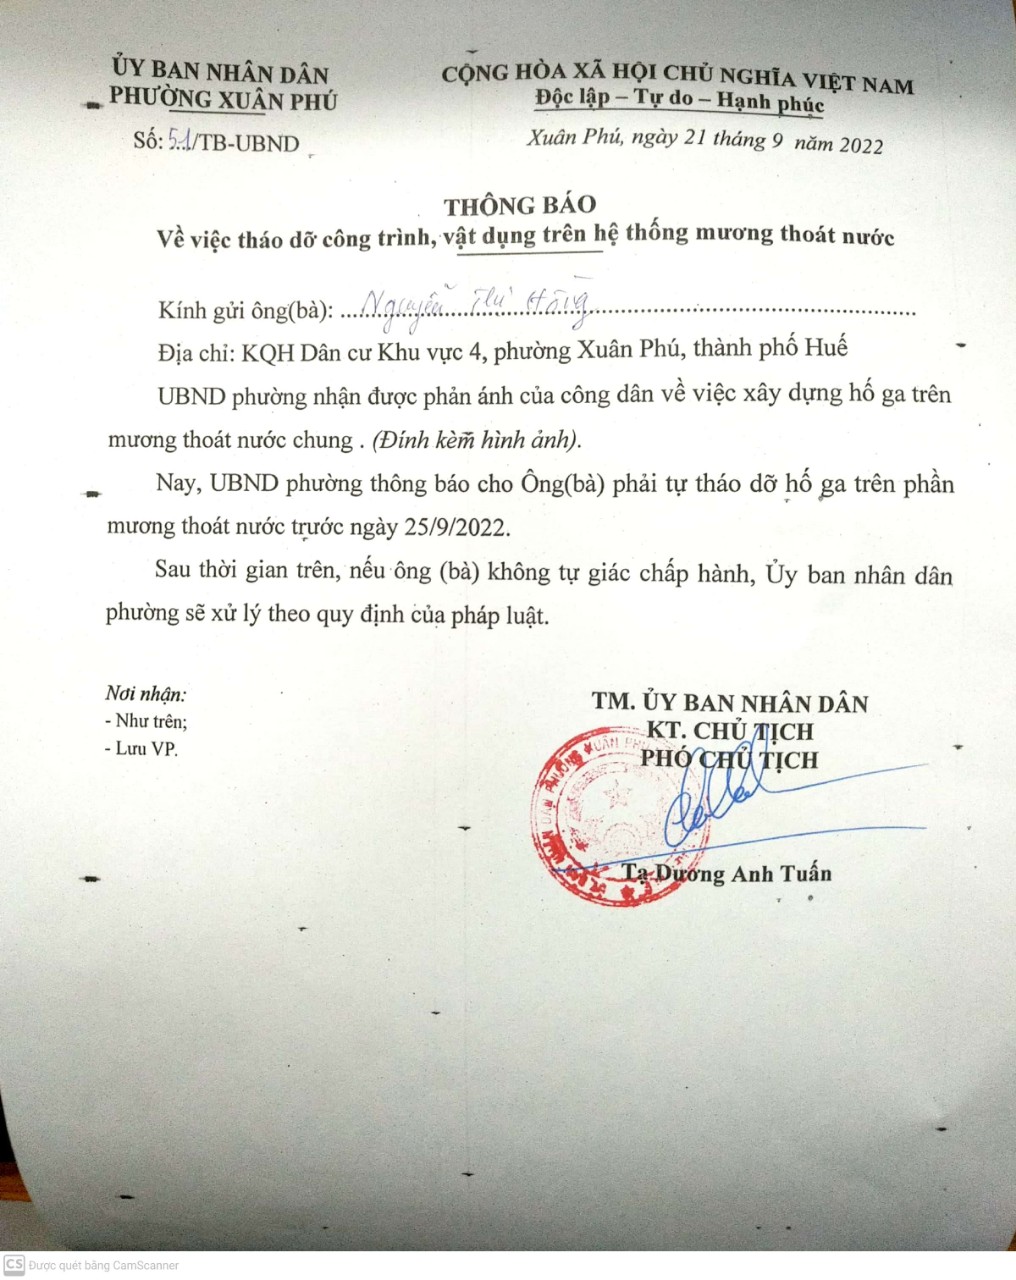 ỦY BAN NHÂN DÂN
PHƯỜNG XUÂN PHÚ
Số: 51/TB-UBND
CỘNG HÒA XÃ HỘI CHỦ NGHĨA VIỆT NAM
Độc lập – Tự do – Hạnh phúc
Xuân Phú, ngày 21 tháng 9 năm 2022
THÔNG BÁO
Về việc tháo dỡ công trình, vật dụng trên hệ thống mương thoát nước
Kính gửi ông(bà): Nguyễn Thị Hằng
Địa chỉ: KQH Dân cư Khu vực 4, phường Xuân Phú, thành phố Huế
UBND phường nhận được phản ánh của công dân về việc xây dựng hố ga trên
mương thoát nước chung . (Đính kèm hình ảnh).
Nay, UBND phường thông báo cho Ông(bà) phải tự tháo dỡ hố ga trên phần
mương thoát nước trước ngày 25/9/2022.
Sau thời gian trên, nếu ông (bà) không tự giác chấp hành, Ủy ban nhân dân
phường sẽ xử lý theo quy định của pháp luật.
Nơi nhận:
- Như trên;
- Lưu VP.
TM. ỦY BAN NHÂN DÂN
KT. CHỦ TỊCH
PHÓ CHỦ TỊCH
Tạ Dương Anh Tuấn
CS Được quét bằng CamScanner